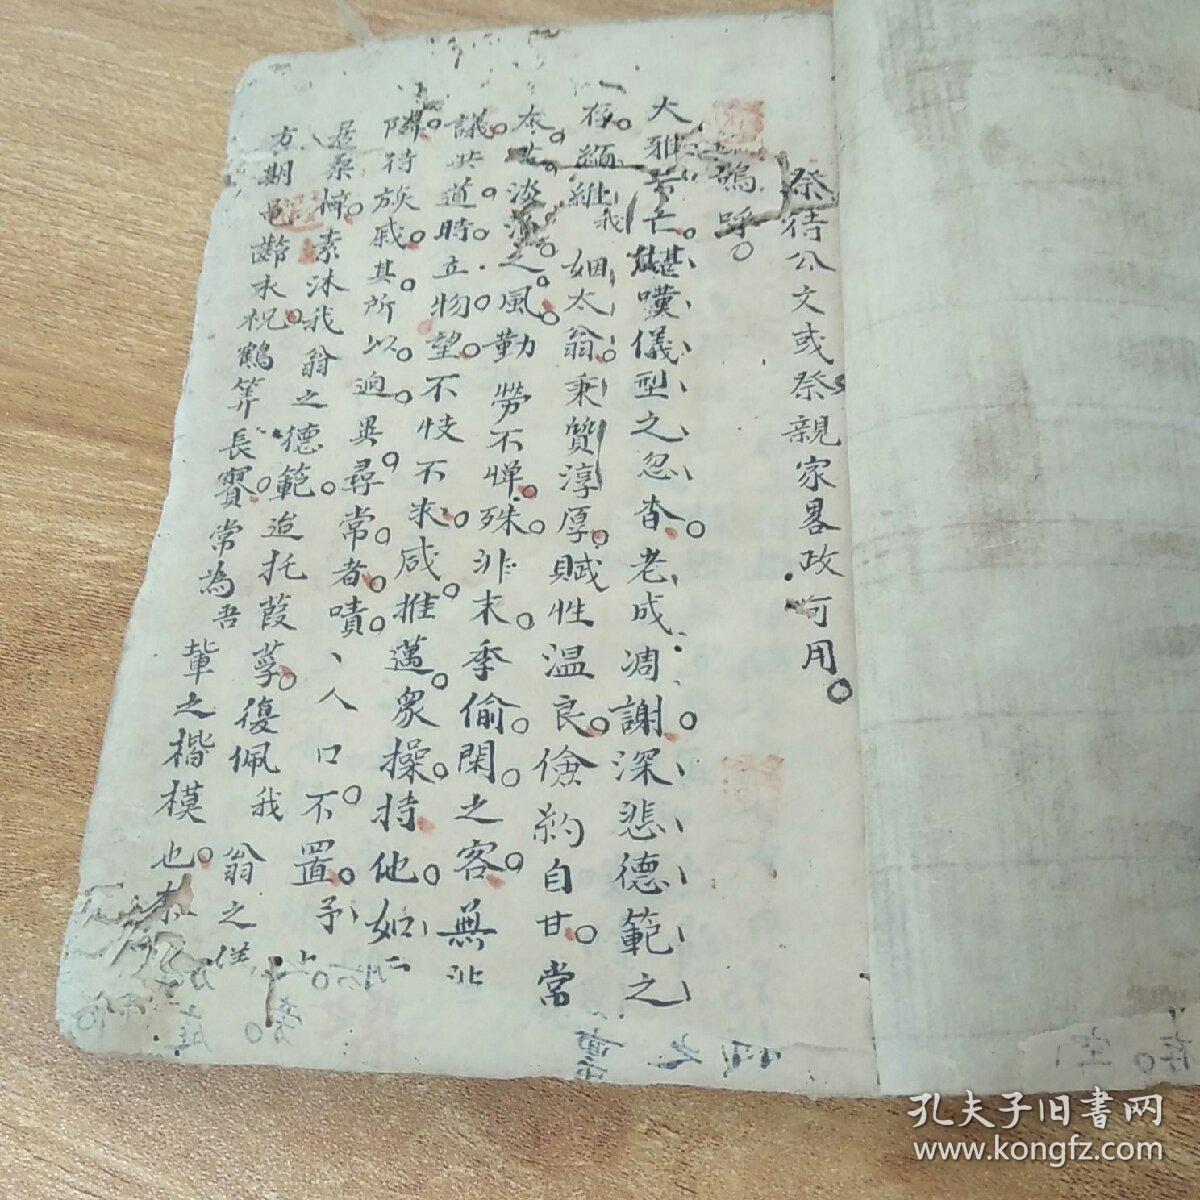 祭待公文或祭親家畧改可用。
嗚呼。
大雅云亡。堪嘆儀型之忽杳。老成凋謝。深悲德範之
存。緬維我姻太翁。秉贊淳厚。賦性温良。儉約自甘。常
太古淡薄之風。勤勞不憚。殊非末季偷閑之客。無非
議共道。時立物望。不忮不求。咸推邁衆。操持他。如
隣待族戚。其所以迥異尋常者。嘖、人口不置。予
是桑梓。素沐我翁之德範。迨托葭莩。復佩我翁之
方期龟齡永祝。鶴筭長賡。常為吾輩之楷模也。
孔夫子旧書网
www.kongfz.com